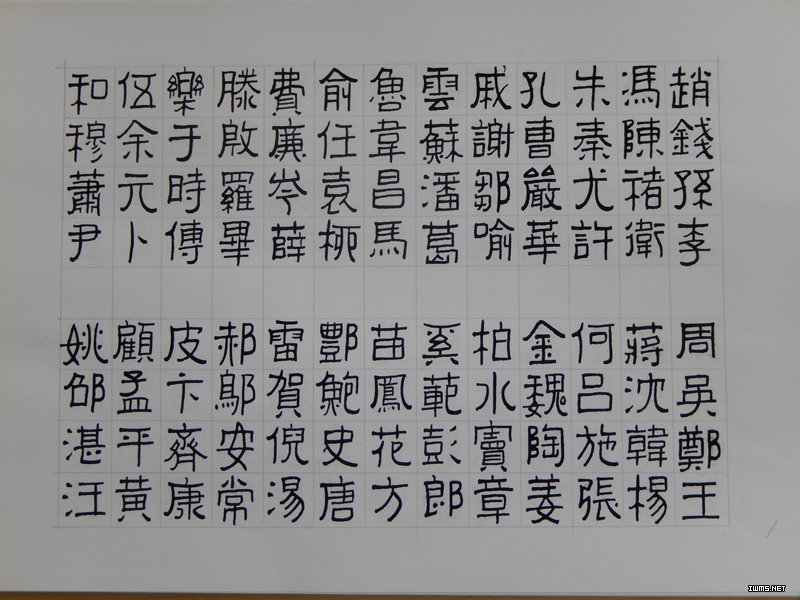 趙錢孫李周吳鄭王
馮陳褚衛蔣沈韓楊
朱秦尤許何呂施張
孔曹嚴華金魏陶姜
戚謝鄒喻柏水竇章
雲蘇潘葛奚範彭郎
魯韋昌馬苗鳳花方
俞任袁柳酆鮑史唐
費廉岑薛雷賀倪湯
滕殷羅畢郝鄔安常
樂于時傅皮卞齊康
伍余元卜顧孟平黃
和穆蕭尹姚邵湛汪
IWMS.NET